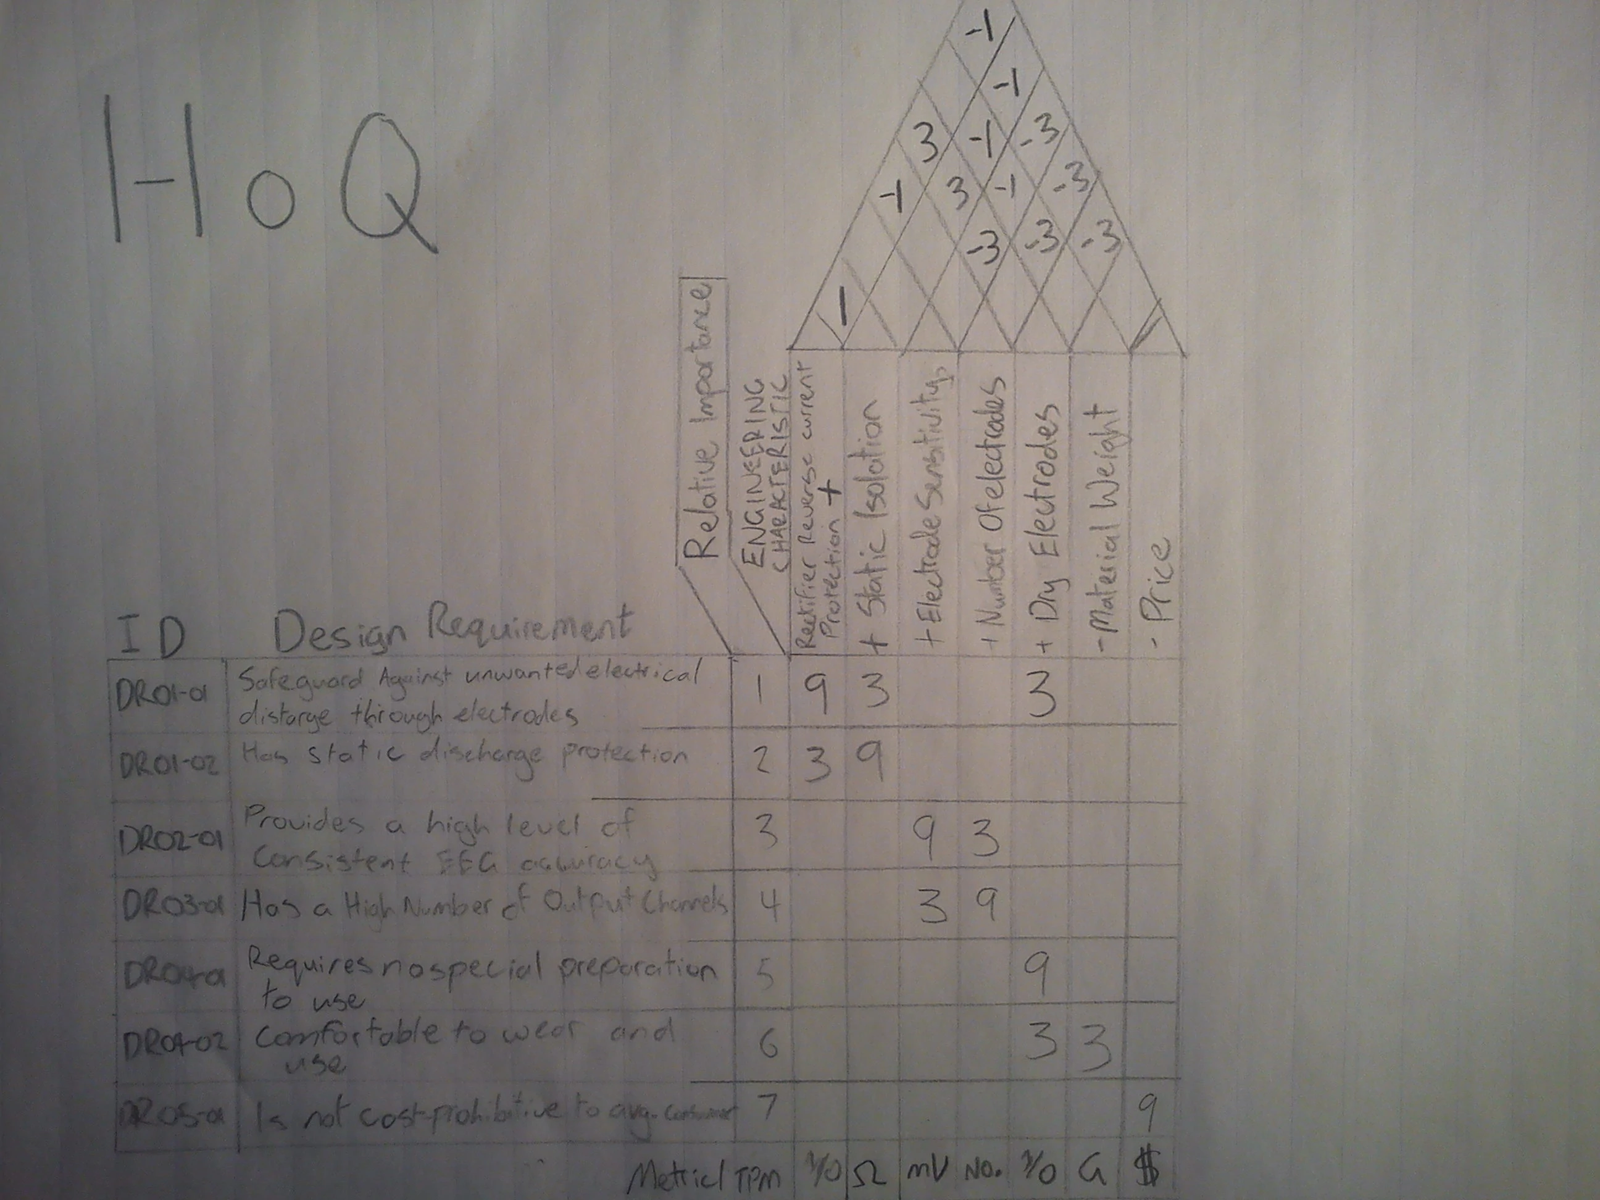 HoQ
-1
-1
3 -1 -3
-1 3 -1 -3
-3 -3 -3
1
Relative Importance
ENGINEERING
CHARACTERISTIC
Rectifier Reverse current
Protection +
+ Static Isolation
+ Electrode Sensitivity
+ Number Of electrodes
+ Dry Electrodes
- Material Weight
- Price
ID Design Requirement
DR01-01 Safeguard Against unwanted electrical
distarge through electrodes 1 9 3 3
DR01-02 Has static discharge protection 2 3 9
DR02-01 Provides a high level of
consistent EEG accuracy 3 9 3
DR03-01 Has a High Number of Output Channels 4 3 9
DR04-01 Requires no special preparation
to use 5 9
DR04-02 Comfortable to wear and
use 6 3 3
DR05-01 Is not cost-prohibitive to avg. consumer 7 9
Metric/TPM 1/0 Ω mV No. 1/0 G $